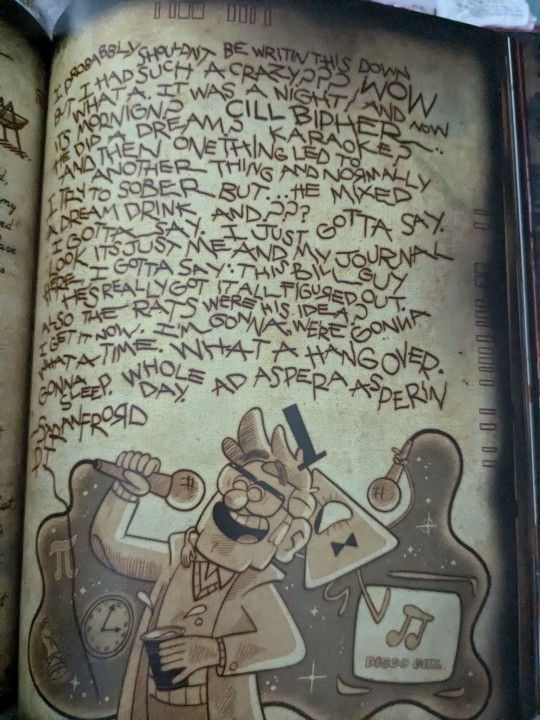 I PROBABBLY SHOULDNT BE WRITIN THIS DOWN
BUT I HAD SUCH A CRAZY??? WOW
WHAT A. IT WAS A NIGHT, AND NOW
ITS MORNIGN? CILL BIPHER...
HE DID A DREAM? KARAOKE?
AND THEN ONE THING LED TO
ANOTHER THING AND NORMALLY
I TRY TO SOBER BUT.. HE MIXED
A DREAM DRINK AND.???
I GOTTA SAY. I JUST GOTTA SAY.
LOOK ITS JUST ME AND MY JOURNAL
HERE. I GOTTA SAY: THIS BILL GUY
HES REALLY GOT IT ALL FIGURED OUT.
ALSO THE RATS WERE HIS IDEA?
I GET IT NOW. I'M GONNA. WERE GONNA
WHAT A TIME. WHAT A HANGOVER.
GONNA SLEEP. WHOLE DAY. AD ASPERA ASPERIN
π
DISCO GIRL